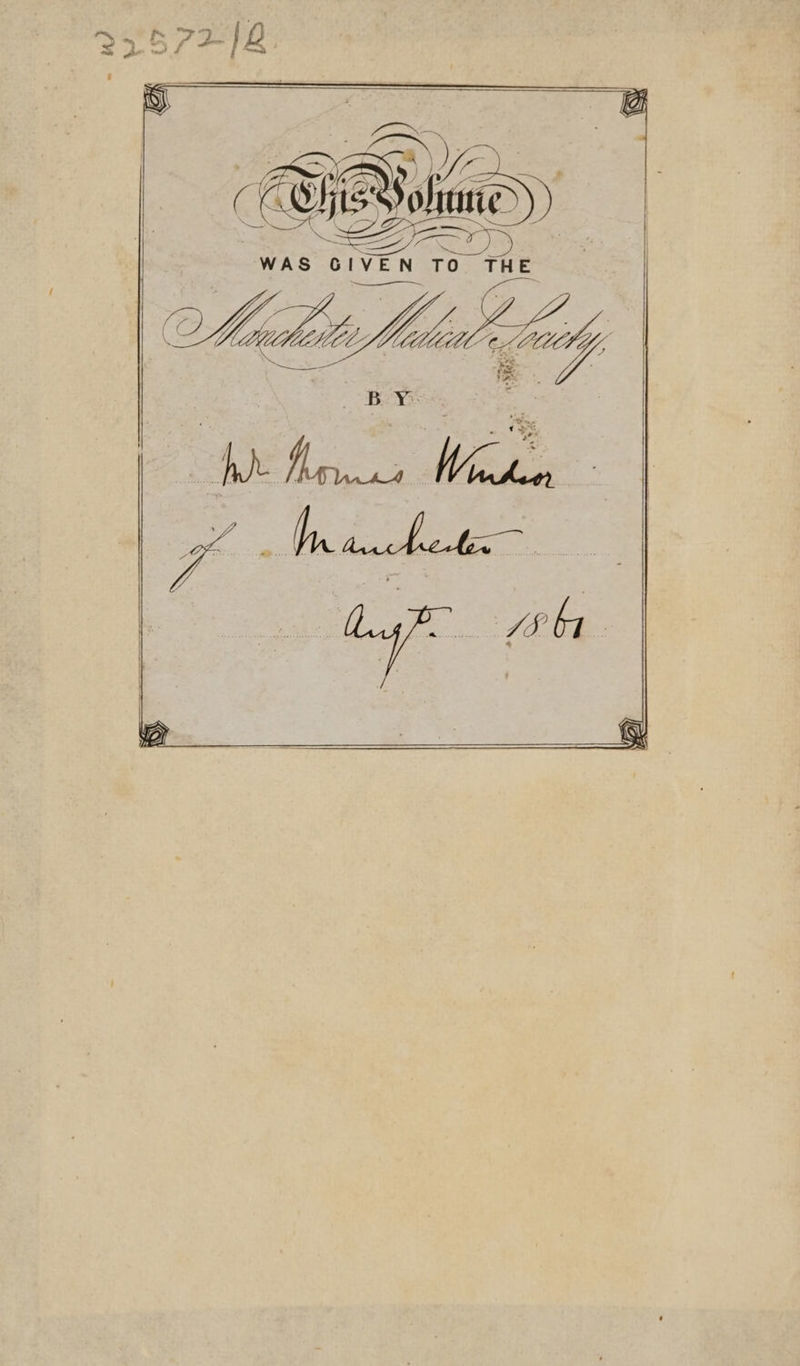 22572/B
This Volume
WAS GIVEN TO THE
Manchester Medical Society,
BY
Mr Thomas Windsor
of Manchester
Augt. 1861